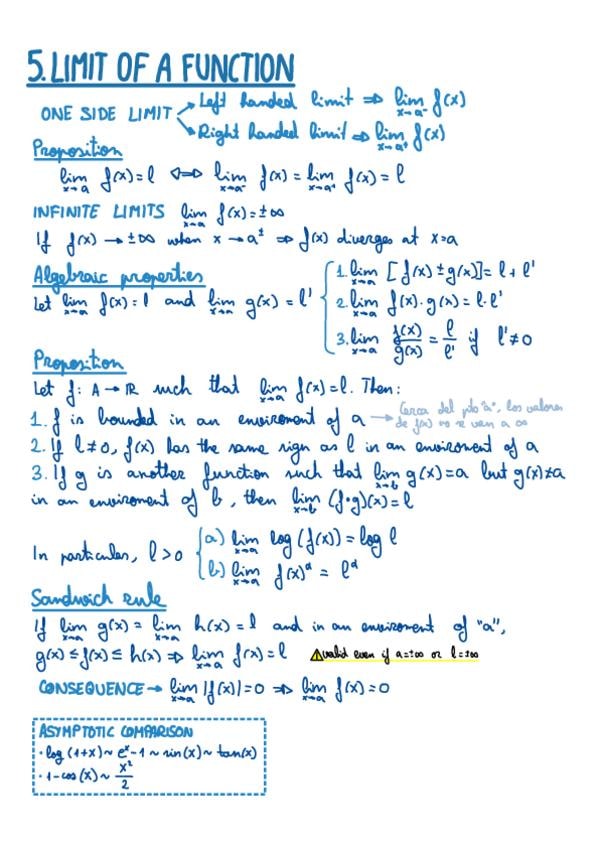 5. LIMIT OF A FUNCTION
ONE SIDE LIMIT → Left handed limit ⇒ lim x→a⁻ f(x)
→ Right handed limit ⇒ lim x→a⁺ f(x)
Proposition
lim x→a f(x) = l ⟺ lim x→a⁻ f(x) = lim x→a⁺ f(x) = l
INFINITE LIMITS lim x→a f(x) = ±∞
If f(x) → ±∞ when x → a± ⇒ f(x) diverges at x=a
Algebraic properties
Let lim x→a f(x) = l and lim x→a g(x) = l'
1. lim x→a [f(x) ± g(x)] = l + l'
2. lim x→a f(x)·g(x) = l·l'
3. lim x→a f(x)/g(x) = l/l' if l' ≠ 0
Proposition
Let f: A → IR such that lim x→a f(x) = l. Then:
1. f is bounded in an enviroment of a → Cerca del pto "a", los valores
de f(x) no se van a ∞
2. If l ≠ 0, f(x) has the same sign as l in an enviroment of a
3. If g is another function such that lim x→b g(x) = a but g(x) ≠ a
in an enviroment of b, then lim x→b (f∘g)(x) = l
In particular, l > 0
a) lim x→a log(f(x)) = log l
b) lim x→a f(x)^α = l^α
Sandwich rule
If lim x→a g(x) = lim x→a h(x) = l and in an enviroment of "a",
g(x) ≤ f(x) ≤ h(x) ⇒ lim x→a f(x) = l ⚠ valid even if a=±∞ or l=±∞
CONSEQUENCE → lim x→a |f(x)| = 0 ⇒ lim x→a f(x) = 0
ASYMPTOTIC COMPARISON
· log(1+x) ~ eˣ-1 ~ sin(x) ~ tan(x)
· 1-cos(x) ~ x²/2